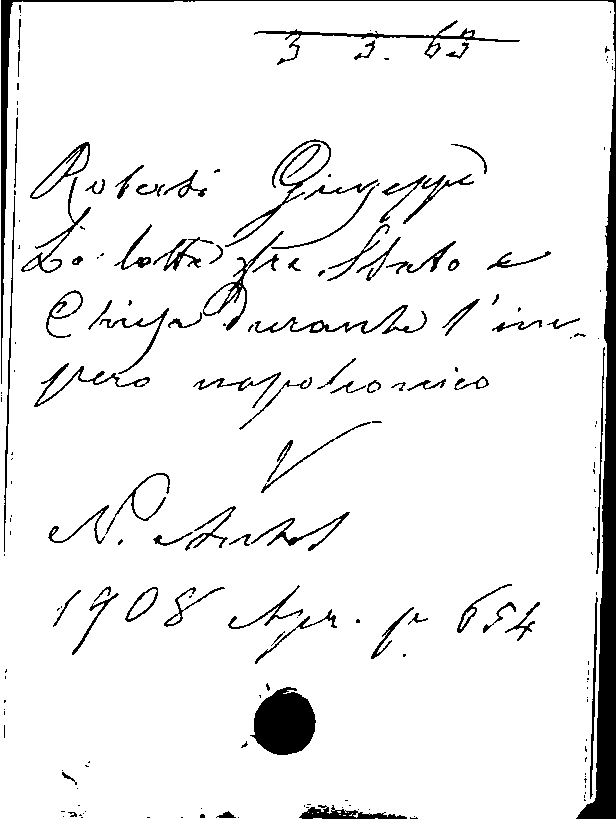 3 3. 63
Roberti Giuseppe
La lotta tra Stato e
Chiesa durante l'im-
pero napoleonico
V
N. Antol
1908 Apr. p. 654